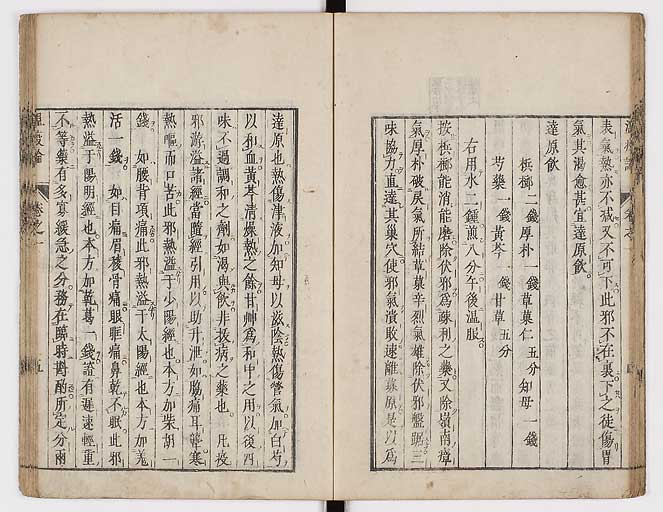 表氣熱亦不減又不可下此邪不在裏下之徒傷胃
氣其渴愈甚宜達原飲
達原飲
檳榔 二錢 厚朴 一錢 草菓仁 五分 知母 一錢
芍藥 一錢 黃芩 一錢 甘草 五分
右用水二鍾煎八分午後溫服
按檳榔能消能磨除伏邪為疎利之藥又除嶺南瘴
氣厚朴破戾氣所結草菓辛烈氣雄除伏邪盤踞三
味協力直達其巢穴使邪氣潰敗速離募原是以為
達原也熱傷津液加知母以滋陰熱傷營氣加白芍
以和血黃芩清燥熱之餘甘艸為和中之用以後四
味不過調和之劑如渴與飲非拔病之藥也 凡疫
邪游溢諸經當隨經引用以助升泄如脇痛耳聾寒
熱嘔而口苦此邪熱溢于少陽經也本方加柴胡一
錢 如腰背項痛此邪熱溢于太陽經也本方加羗
活一錢 如目痛眉稜骨痛眼眶痛鼻乾不眠此邪
熱溢于陽明經也本方加乾葛一錢證有遲速輕重
不等藥有多寡緩急之分務在臨時斟酌所定分兩
溫疫論 卷之一 五